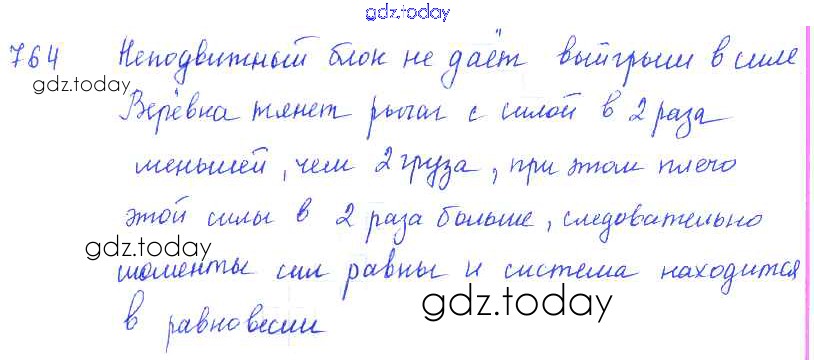 gdz.today
764 Неподвижный блок не даёт выигрыш в силе
gdz.today
Верёвка тянет рычаг с силой в 2 раза
меньшей, чем 2 груза, при этом плечо
этой силы в 2 раза больше, следовательно
gdz.today
моменты сил равны и система находится
в равновесии
gdz.today